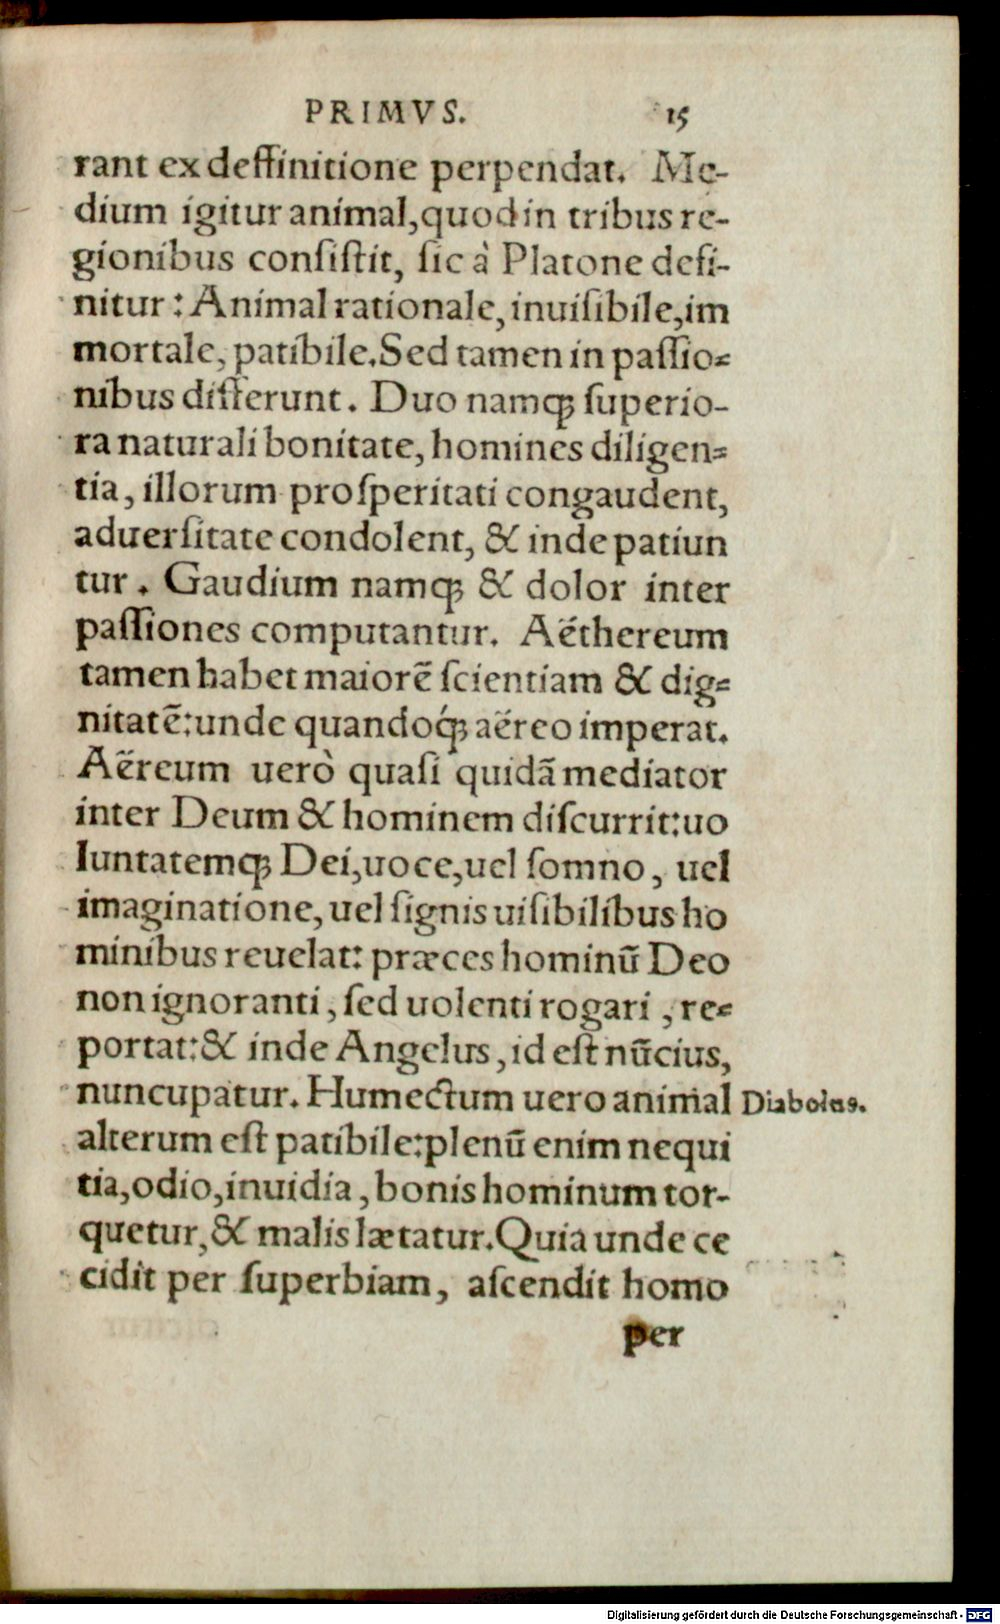 PRIMVS. 15
rant ex deffinitione perpendat. Me-
dium igitur animal, quod in tribus re-
gionibus consistit, sic à Platone defi-
nitur: Animal rationale, inuisibile, im
mortale, patibile. Sed tamen in passio-
nibus differunt. Duo namq; superio-
ra naturali bonitate, homines diligen-
tia, illorum prosperitati congaudent,
aduersitate condolent, & inde patiun
tur. Gaudium namq; & dolor inter
passiones computantur. Aëthereum
tamen habet maiorē scientiam & dig-
nitatē: unde quandoq́; aëreo imperat.
Aëreum uerò quasi quidā mediator
inter Deum & hominem discurrit: uo
luntatemq; Dei, uoce, uel somno, uel
imaginatione, uel signis uisibilibus ho
minibus reuelat: præces hominū Deo
non ignoranti, sed uolenti rogari, re-
portat: & inde Angelus, id est nūcius,
nuncupatur. Humectum uero animal Diabolus.
alterum est patibile: plenū enim nequi
tia, odio, inuidia, bonis hominum tor-
quetur, & malis lætatur. Quia unde ce
cidit per superbiam, ascendit homo
per
Digitalisierung gefördert durch die Deutsche Forschungsgemeinschaft - DFG